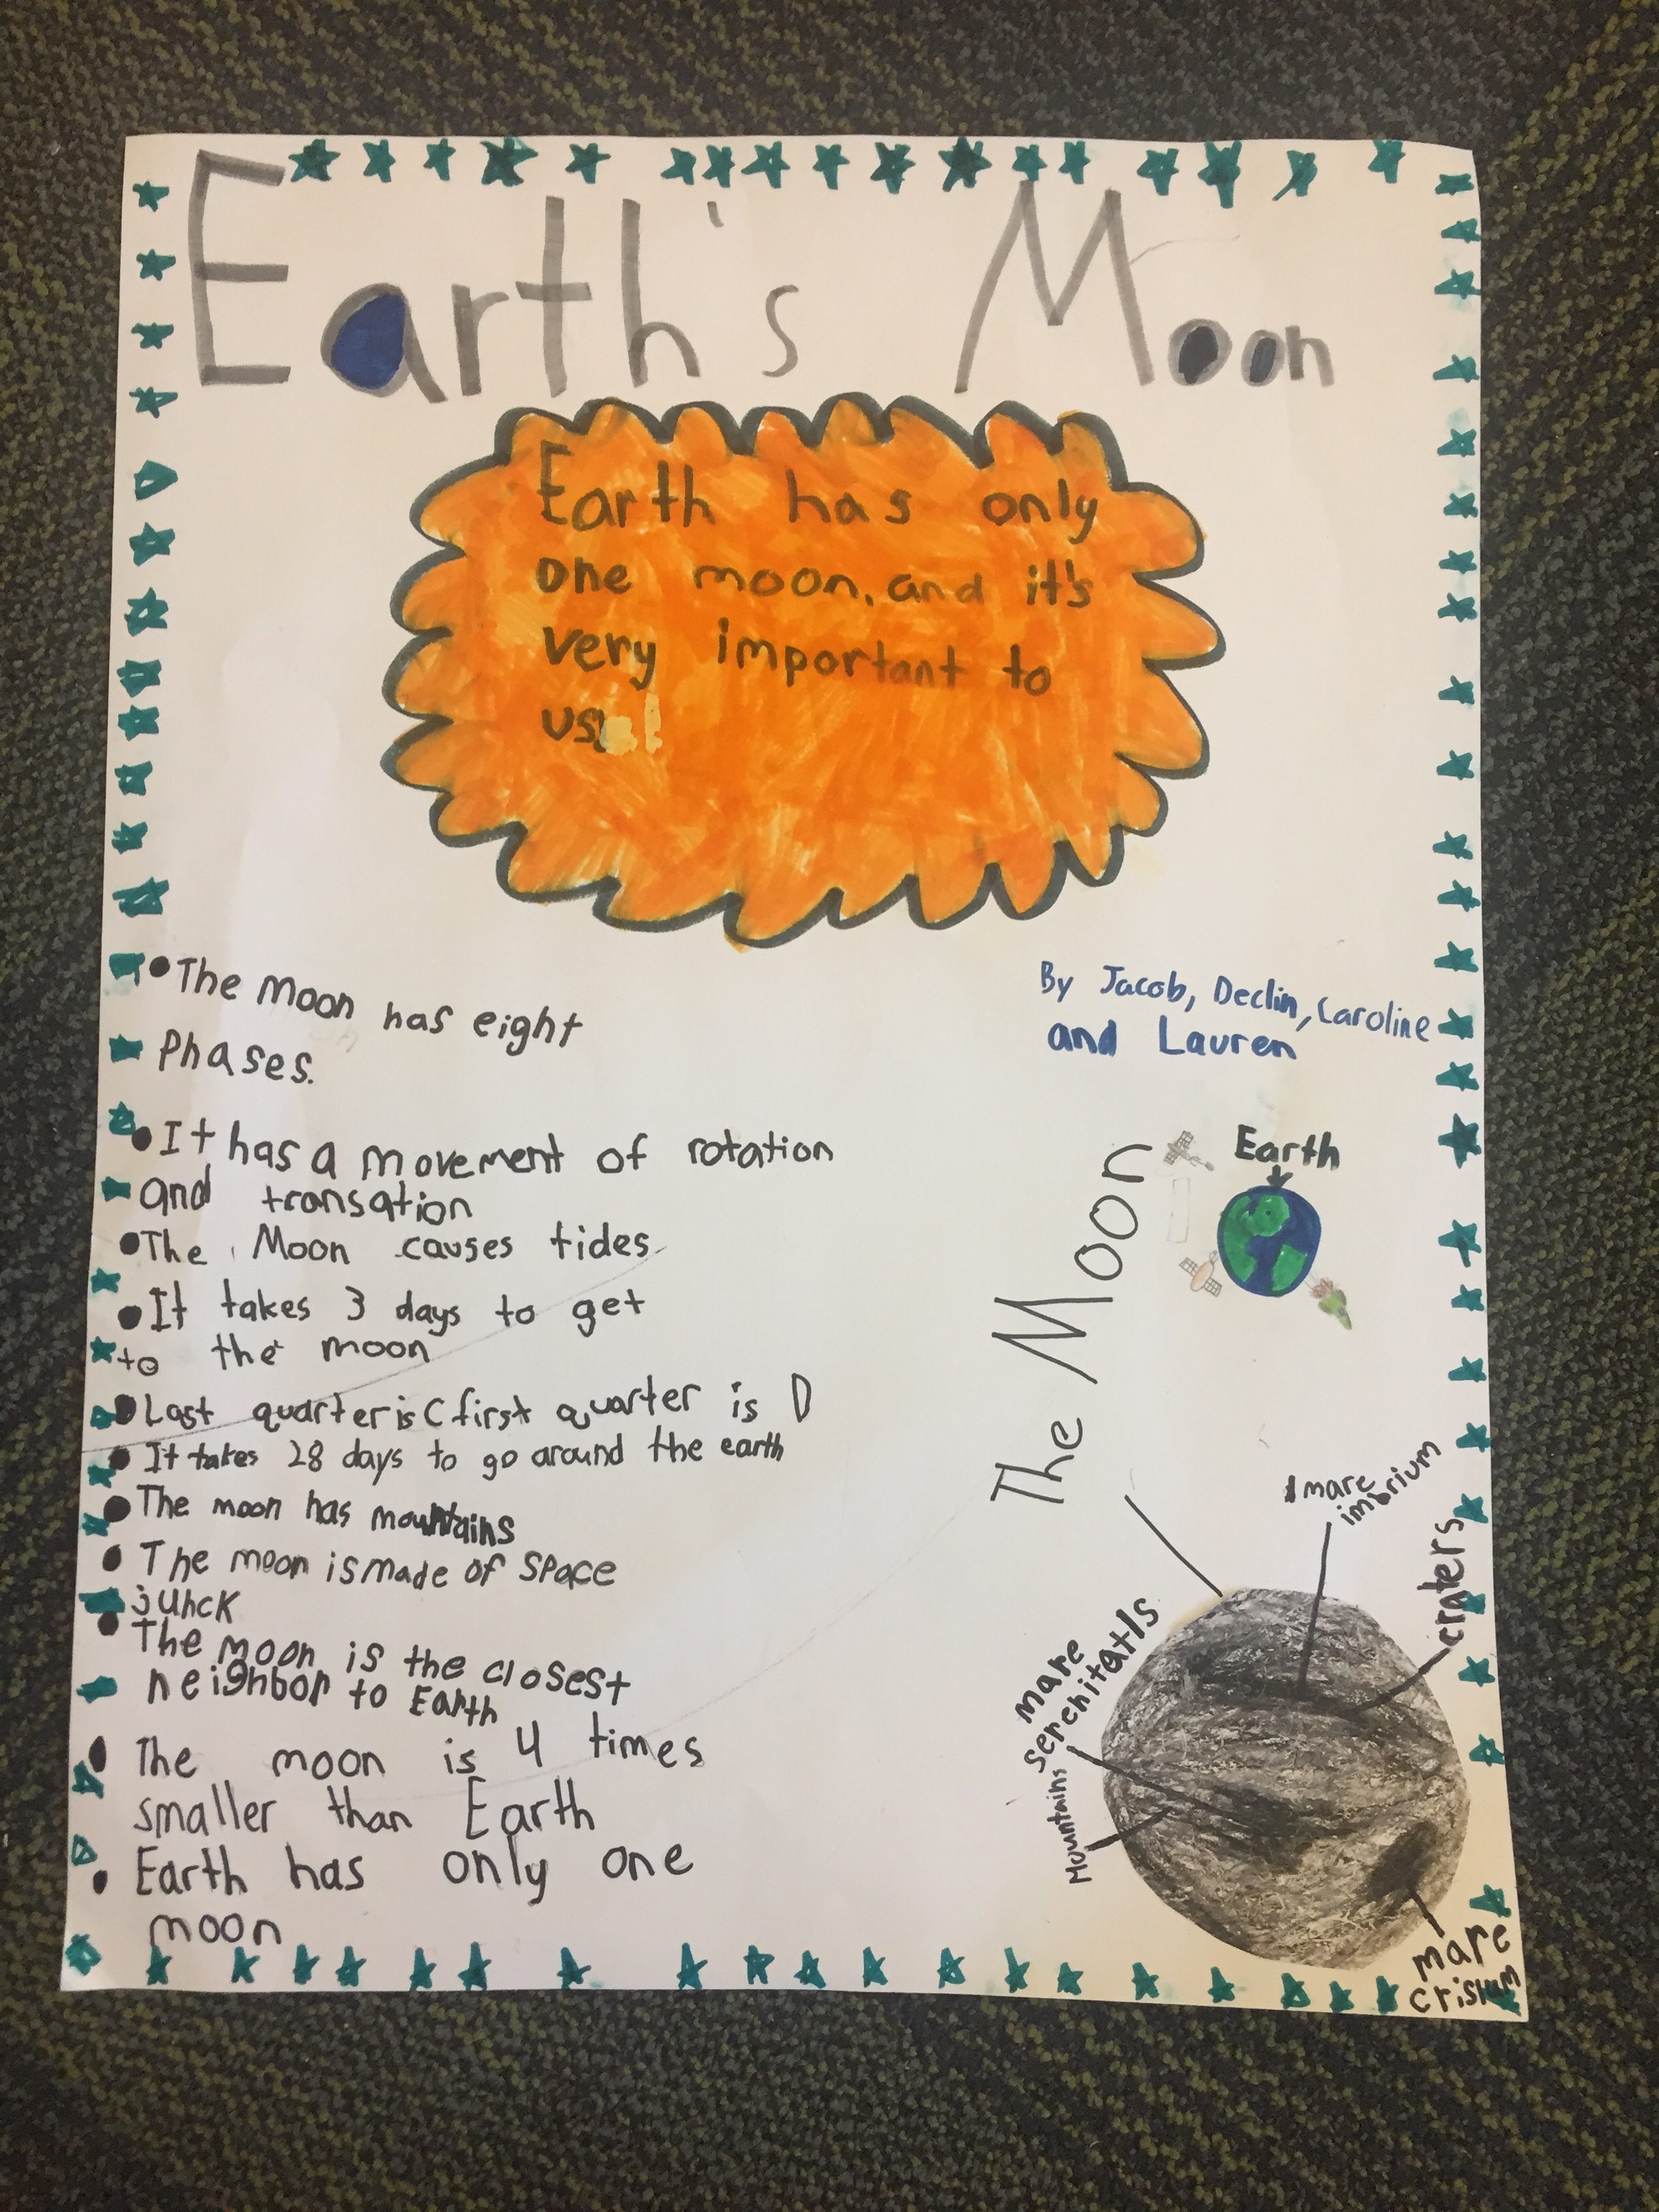 Earth's Moon
Earth has only
one moon, and it's
very important to
us!
• The Moon has eight
Phases.
• It has a movement of rotation
and transation
• The Moon causes tides
• It takes 3 days to get
to the moon
• Last quarter is C first quarter is D
• It takes 28 days to go around the earth
• The moon has mountains
• The moon is made of space
junck
• The moon is the closest
neighbor to Earth
• The moon is 4 times
smaller than Earth
• Earth has only one
moon
By Jacob, Declin, Caroline
and Lauren
Earth
The Moon
mare
imbrium
craters
mare
serenitatis
Mountains
mare
crisium